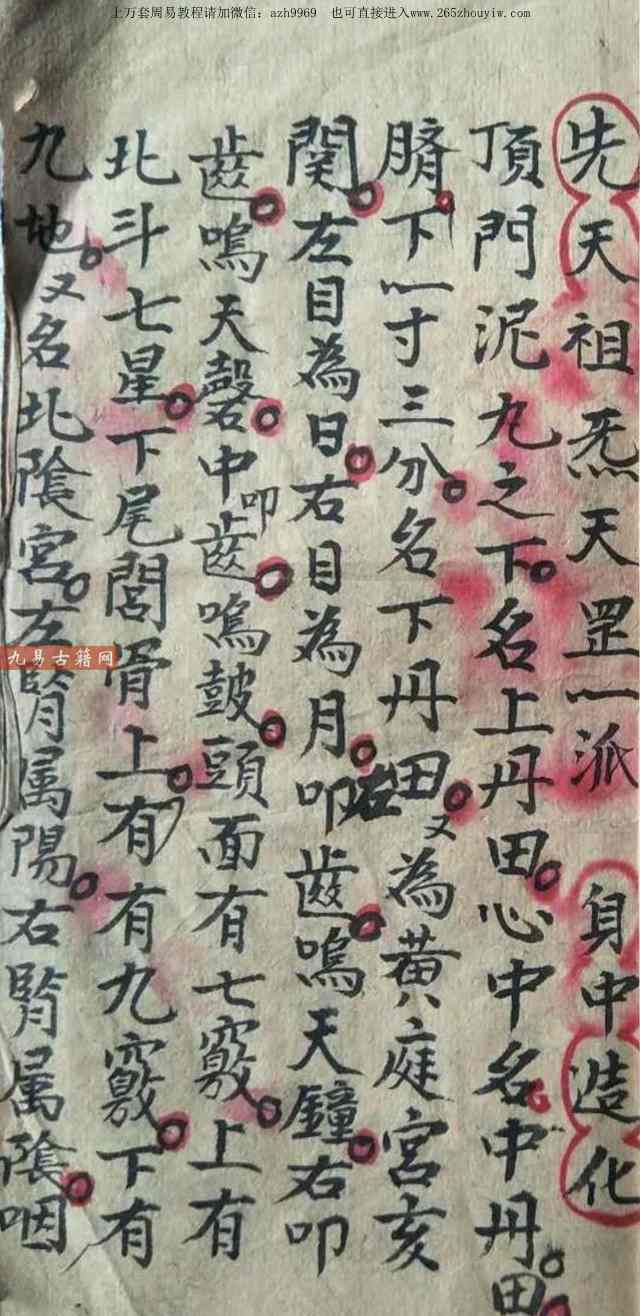 上万套周易教程请加微信：azh9969 也可直接进入www.265zhouyiw.com
先天祖炁天罡一派 身中造化
頂門泥九之下名上丹田心中名中丹田
臍下一寸三分名下丹田又為黃庭宮亥
関左目為日右目為月叩左齒鳴天鐘右叩
齒鳴天磬中叩齒鳴鼓頭面有七竅上有
北斗七星下尾閭骨上有有九竅下有
九地又名北陰宮左腎属陽右腎属陰咽
九易古籍网